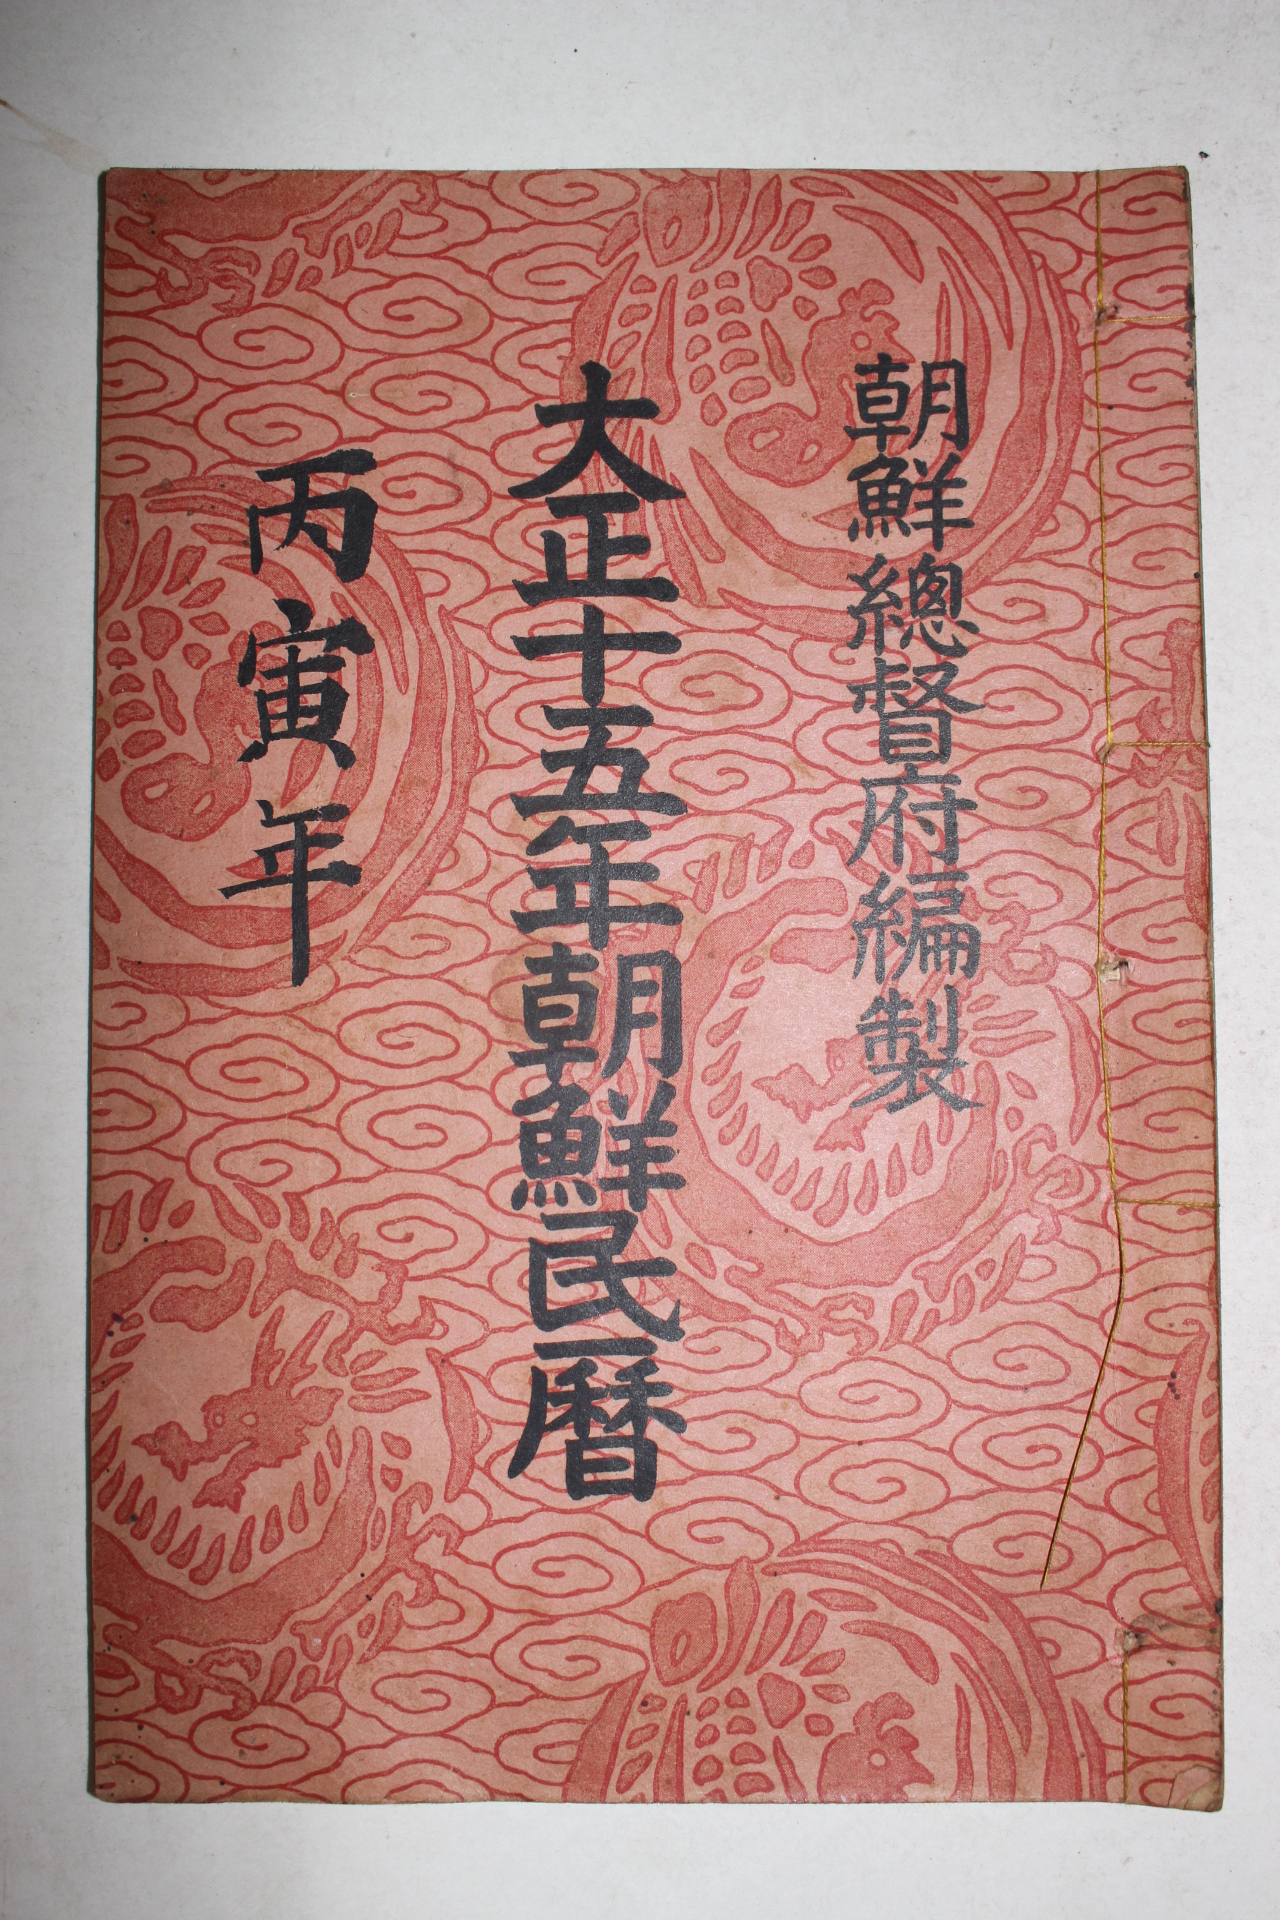 朝鮮總督府編製
大正十五年朝鮮民曆
丙寅年